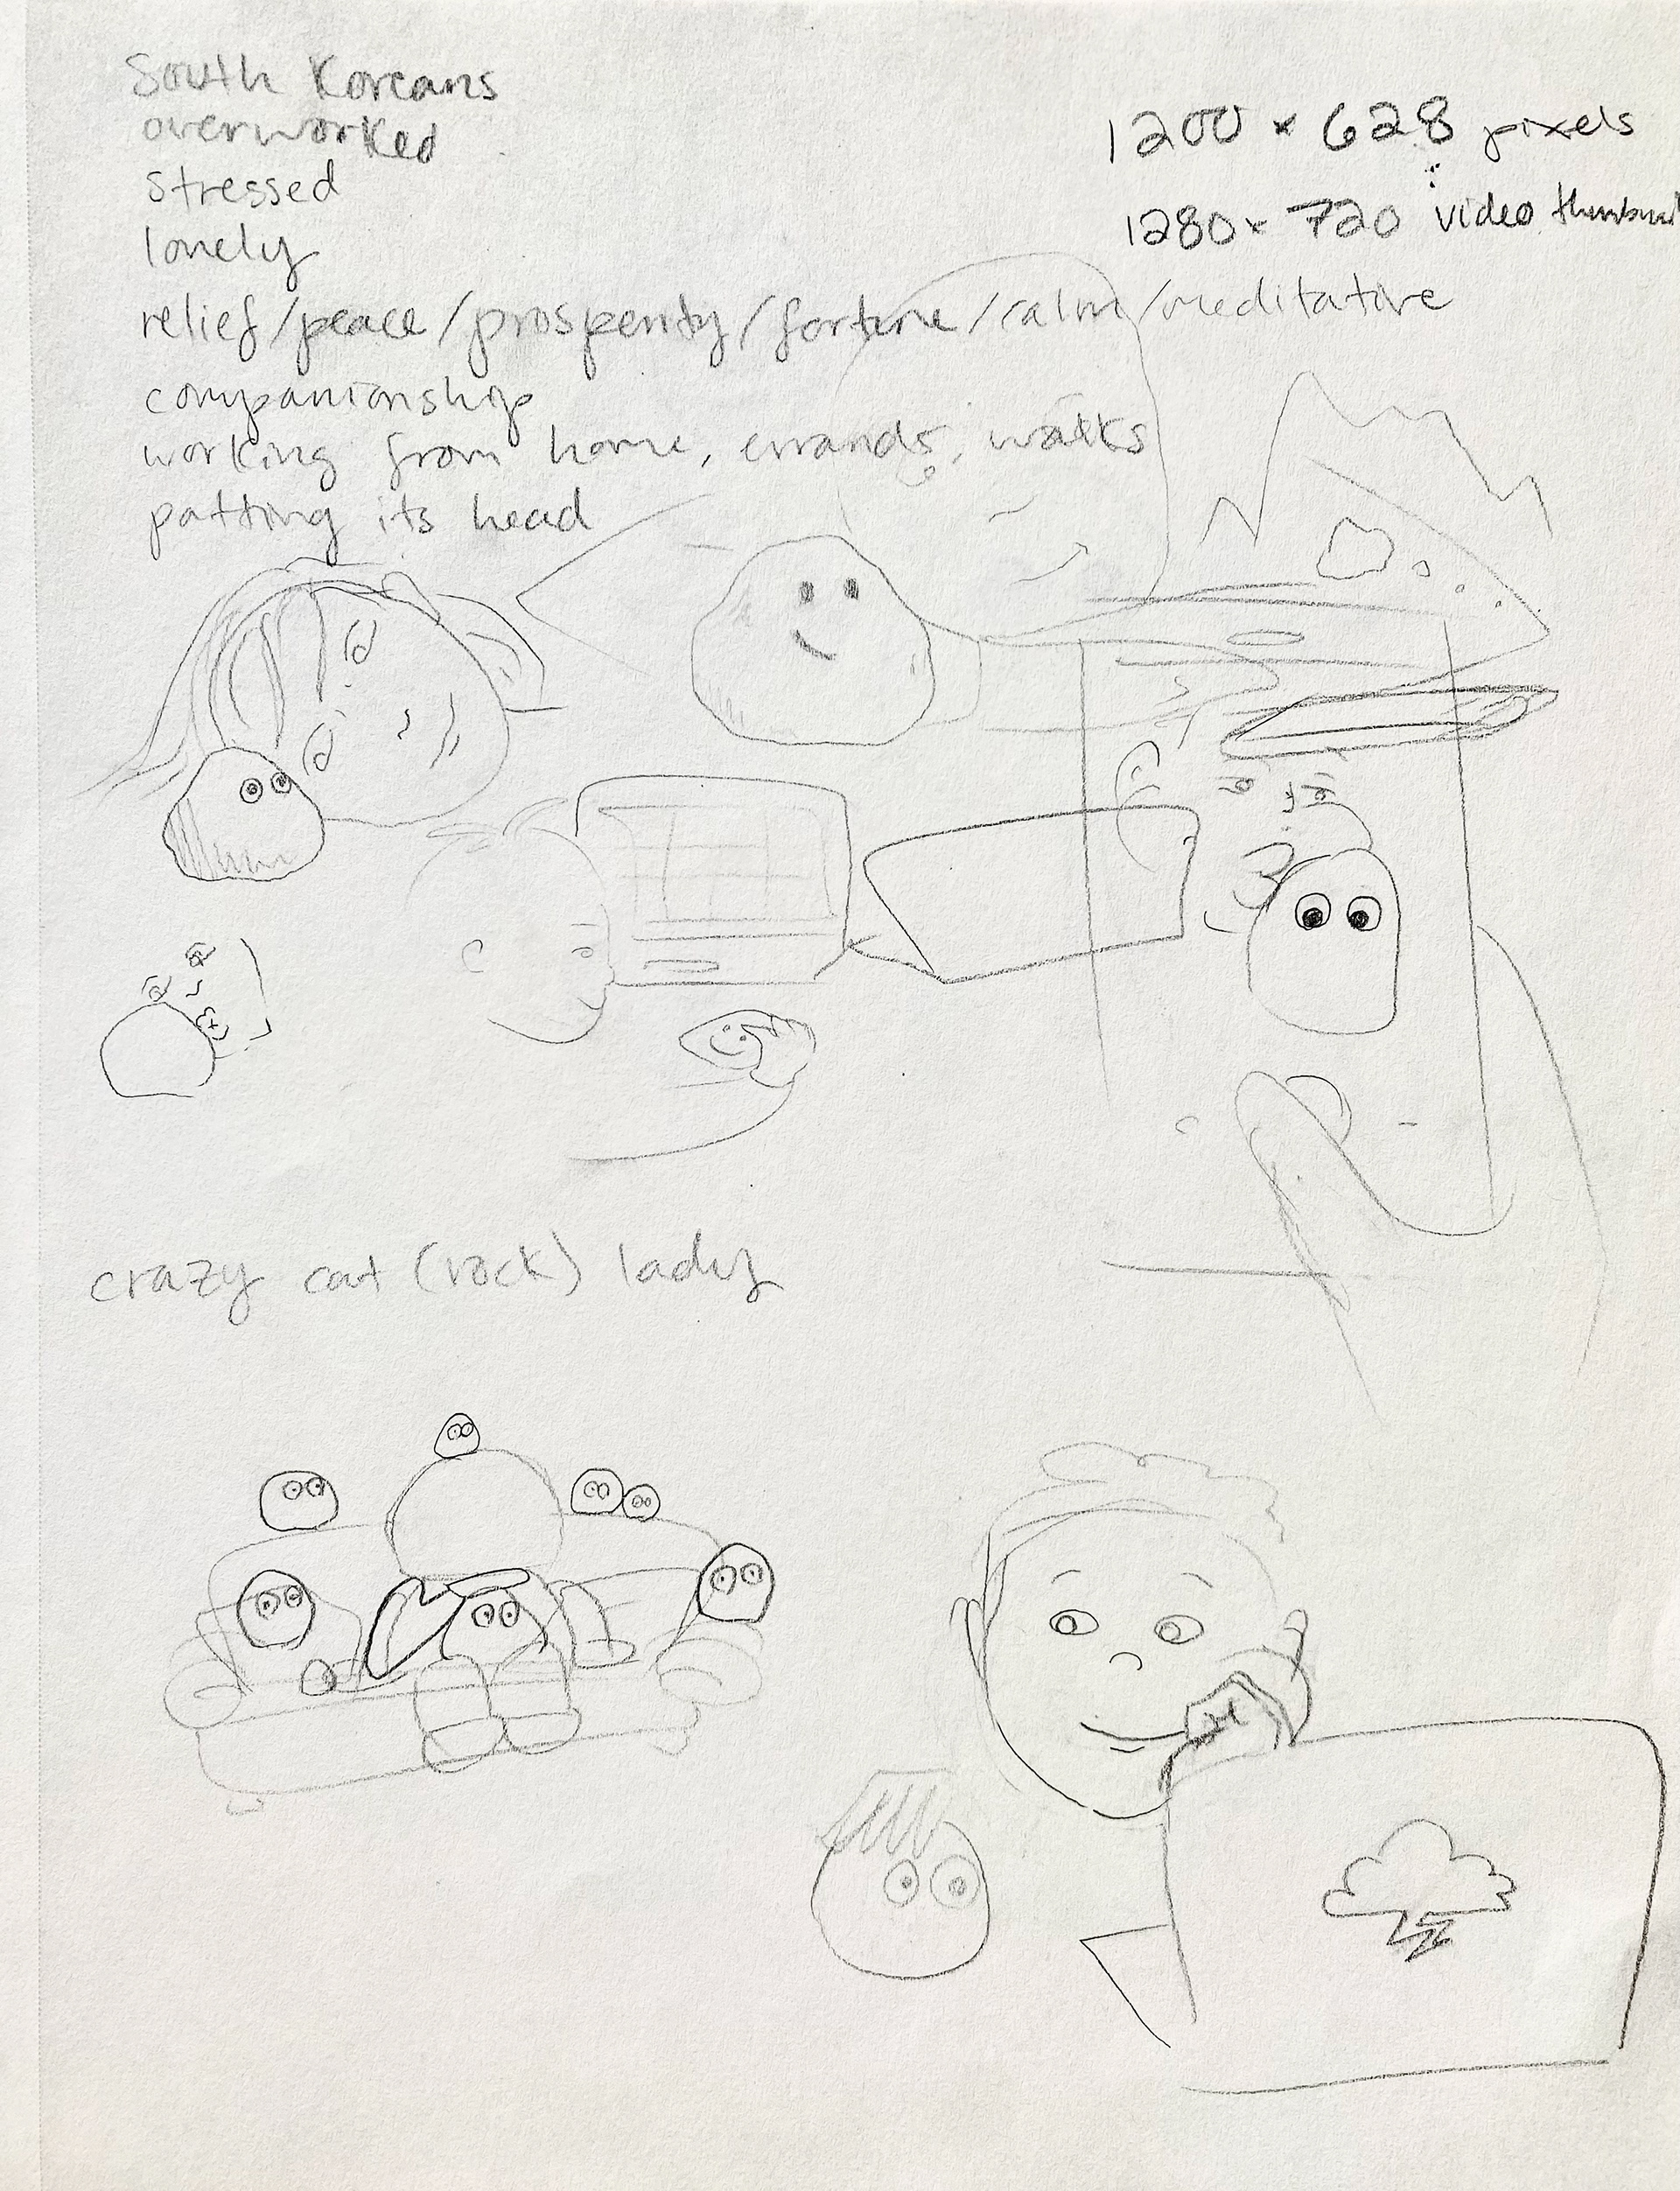 South Koreans
overworked
stressed
lonely
relief/peace/prosperity/fortune/calm/meditative
companionship
working from home, errands, walks
patting its head
1200 × 628 pixels
1280 × 720 video thumbnail
crazy cat (rock) lady